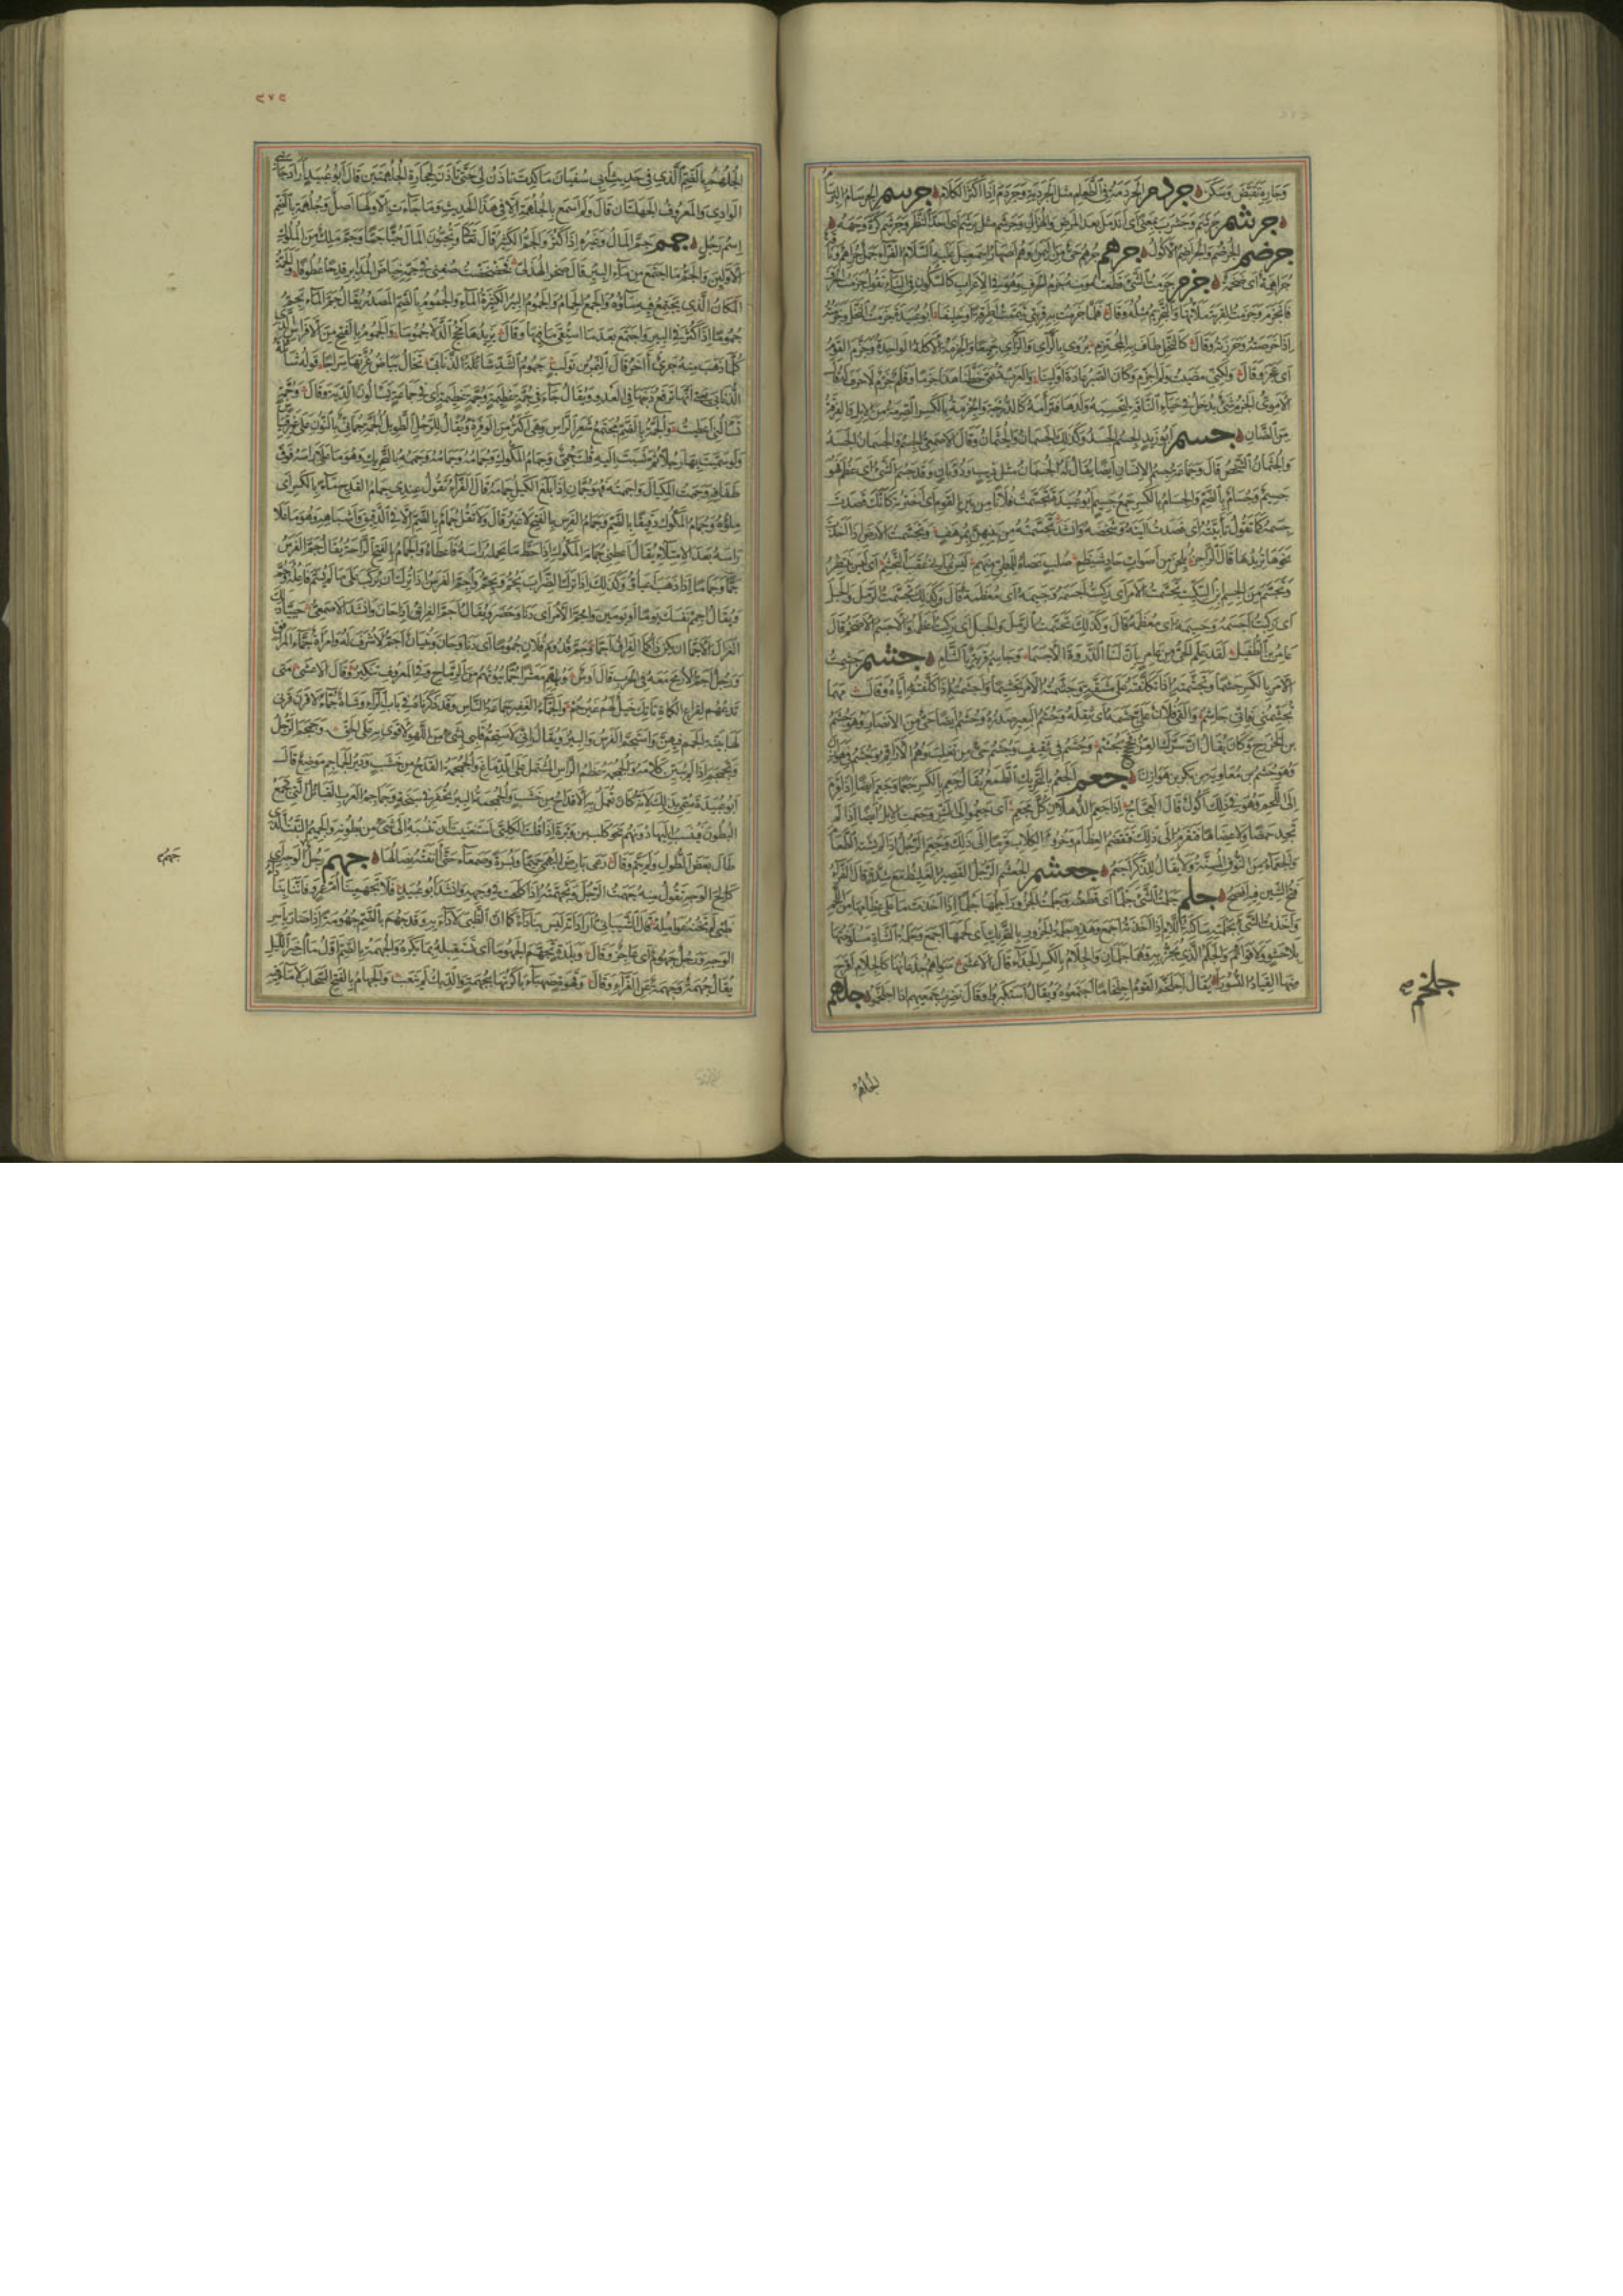 وجارية نقيض وسكن جردم الجردمة في الطعام مثل الجردبة وجردم اذا اكثر الكلام جرسم الجرسام البرسام
جرشم جرشم وجرشب بمعنى اى اندمل بعد المرض والهزال وجرشم مثل برشم اى احد النظر وجرشم كره وجهه
جرضم الجرضم والجراضم الاكول جرهم جرهم حي من اليمن وهم اصهار اسمعيل عليه السلام الفراء جمل جراهم وناقة
جراهمة اى ضخمة جزم جزمت الشئ قطعته ومنه جزم الحرف وهو في الاعراب كالسكون في البناء تقول جزمت الحرف
فانجزم وجزمت القربة ملأتها والتجزيم مثله وقال فلما جزمت به قربتي تيممت اطرقة او خليفا ابو عبيدة جزمت النخل وجزمته
اذا خرصته وحزرته وقال كالنخل طاف بها المجتزم يروى بالراء والزاى جميعا والجزمة الاكلة الواحدة وجزم القوم
اى عجزوا وقال ولكني مضيت ولم اجزم وكان الصبر عادة اولينا والعرب تسمي خطنا هذا جزما وقلم جزم لا حرف له قال
الاموي الجزم شئ يدخل في حياء الناقة لتحسبه ولدها فترأمه كالدرجة والجزمة بالكسر الصرمة من الابل والفرقة
من الضان جسم ابو زيد الجسم الجسد وكذلك الجسمان والجثمان وقال الاصمعي الجسم والجسمان الجسد
والجثمان الشخص قال وجماعة جسم الانسان ايضا يقال له الجسمان مثل ذيب وذؤبان وقد جسم الشئ اى عظم فهو
جسيم وجسام بالضم والجسام بالكسر جمع جسيم ابو عبيدة تجسمت فلانا من بين القوم اى اخترته كانك قصدت
جسمه كما تقول تأييته اى قصدت آيته وشخصه وانشد تجسمته من بينهن بمرهف وتجسمت الارض اذا اخذت
نحوها تريدها قال الراجز
وتجسم من الجسيم ابن السكيت تجسمت الامر اى ركبت اجسمه وجسيمه اى معظمه قال وكذلك تجسمت الرمل والجبل
اى ركبت اعظمه والاجسم الاضخم قال
عامر بن الطفيل لقد علم الحي من عامر بان لنا الذروة الاجسما وجاسم قرية بالشام جشم جشمت
الامر بالكسر جشما وتجشمته اذا تكلفته على مشقة وجشمته الامر تجشيما واجشمته اذا كلفته اياه وقال مهما
تجشمني فاني جاشم والقى فلان علي جشمه اى ثقله وجشم البعير صدره وجشم ايضا حي من الانصار وهو جشم
بن الخزرج وجشم في ثقيف وجشم حي من تغلب وهم الاراقم وجشم في هوازن
وهو جشم بن معاوية بن بكر بن هوازن جعم الجعم بالتحريك الطمع يقال جعم بالكسر جعما وجعم ايضا اذا قرم
الى اللحم وهو في ذلك اكول قال العجاج وجعمت الابل ايضا اذا لم
تجد حمضا ولا عضاها فتقرم الى ذلك فتقضم العظام وخروء الكلاب وجعم الرجل اذا لم يشته الطعام
والجعماء من النوق المسنة ولا يقال للذكر اجعم جعشم الجعشم الرجل القصير الغليظ مع شدة قال الفراء
فتح الشين فيه افصح جلم جلمت الشئ جلما اى قطعته وجلمت الجزور اجلمها جلما اذا اخذت ما على عظامها من اللحم
واخذت الشئ بجلمته ساكنة اللام اذا اخذته اجمع وهذه جلمة الجزور بالتحريك اى لحمها اجمع وجلمة الشاة مسلوختها
بلا حشو ولا قوائم والجلم الذي يجز به وهما جلمان والجلام بالكسر الجداء قال الاعشى سواهم جذعانها كالجلام اقرح
منها القياد النسورا يقال اجلخم القوم اجلخماما اجتمعوا ويقال استكبروا وقال نضرب جمعيهم اذا اجلخموا جلهم
جلخم صح
الجلهم
٢٧٥
الجلهمة بالضم الذي في حديث ابي سفيان ما كدت تاذن لي حتى تاذن لحجارة الجلهمتين قال ابو عبيد اراد جانبي
الوادي والمعروف الجلهتان قال ولم اسمع بالجلهمة الا في هذا الحديث وما جاءت الا ولها اصل وجلهمة بالضم
اسم رجل جمم جم المال وغيره اذا كثر والجم الكثير قال تعالى وتحبون المال حبا جما وجم ملك من الملوك
الاولين والجم ما اجتمع من ماء البير قال صخر الهذلي فخضخضت صفني في جمه خياض المدابر قدحا عطوفا والجمة
المكان الذي يجتمع فيه ماؤه والجمع الجمام والجموم البير الكثيرة الماء والجموم بالضم المصدر يقال جم الماء يجم
جموما اذا كثر في البير واجتمع بعد ما استقي ما فيها وقال يزيدها مخج الدلا جموما والجموم بالفتح من الافراس الذي
كلما ذهب منه جري اتاه جري اخر قال النمر بن تولب جموم الشد شائلة الذنابى تخال بياض غرتها سراجا قوله شائلة
الذنابى يعني انها ترفع ذنبها في العدو ويقال جاء في جمة عظيمة وجمة عظيمة اى في جماعة يسالون الدية وقال وجمة
تسألني اعطيت والجمة بالضم مجتمع شعر الراس وهي اكثر من الوفرة ويقال للرجل الطويل الجمة جماني بالنون على غير قياس
ولو سميت بها رجلا ثم نسبت اليه قلت جمي وجمام المكوك وجمامه وجمامه وجممه بالتحريك وهو ما على راسه فوق
طفافه وجممت المكيال واجممته فهو جمان اذا بلغ الكيل جمامه قال الفراء تقول عندي جمام القدح ماء بالكسر اى
ملؤه وجمام المكوك دقيقا بالضم وجمام الفرس بالفتح لا غير قال ولا تقل جمام بالضم الا في الدقيق واشباهه وهو ما علا
راسه بعد الامتلاء يقال اعطني جمام المكوك اذا حط ما يحمله راسه فاعطاه والجمام بالفتح الراحة يقال جم الفرس
جما وجماما اذا ذهب اعياؤه وكذلك اذا ترك الضراب يجم ويجم واجم الفرس اذا ترك ان يركب على ما لم يسم فاعله وجم
ويقال اجم نفسك يوما او يومين واجم الامر اى دنا وحضر ويقال اجم الفراق اذا حان وانشد الاصمعي حييا ذلك
الغزال الاحما ان يكن ذلك الفراق اجما وجم قدوم فلان جموما اى دنا وحان وبنيان اجم لا شرف له وامراة جماء المرافق
ورجل اجم لا رمح معه في الحرب قال اوس ويل امهم معشرا جما بيوتهم من الرماح وفي المعروف تنكير وقال الاعشى متى
تدعهم لقراع الكماة تاتك خيل لهم غير جم والجماء الغفير جماعة الناس وقد ذكرناه في باب الراء وشاة جماء لا قرن
لها بينة الجمم واستجم الفرس والبير ويقال اني لاستجم قلبي بشئ من اللهو لاقوى به على الحق وجمجم الرجل
وتجمجم اذا لم يبين كلامه والجمجمة عظم الراس المشتمل على الدماغ والجمجمة القدح من خشب ودير الجماجم موضع قال
ابو عبيدة سمي بذلك لانه كان تعمل به الاقداح من خشب والجمجمة البير تحفر في سبخة وجماجم العرب القبائل التي تجمع
البطون فينسب اليها دونهم نحو كلب بن وبرة اذا قلت الكلبي استغنيت ان تنسبه الى شئ من بطونه والجميم النبت الذي
طال بعض الطول ولم يتم وقال رعى بارض البهمى جميما وبسرة وصمعاء حتى آنفته نصالها جهم رجل جهم الوجه اى
كالح الوجه تقول منه جهمت الرجل وتجهمته اذا كلحت في وجهه وانشد ابو عبيد فلا تجهمينا ام عمرو فانما بنا داء
ظبي لم تخنه عوامله قال الشيباني اراد انه ليس بنا داء كما ان الظبي لا داء به وقد جهم بالضم جهومة اذا صار باسر
الوجه ورجل جهوم اى عاجز وقال وبلدة تجهم الجهوما اى تستقبله بما يكره والجهمة بالضم اول مآخير الليل
يقال جهمة وجهمة عن الفراء وقال وقهوة صهباء باكرتها بجهمة والديك لم ينعب والجهام بالفتح السحاب لا ماء فيه
جهم